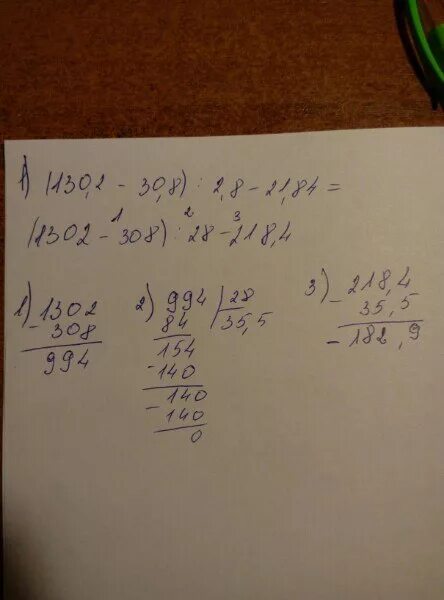 1) (130,2 - 30,8) : 2,8 - 21,84 =
1 2 3
(1302 - 308) : 28 - 218,4
1) - 1302
308
994
2) 994 | 28
84 35,5
154
- 140
140
- 140
0
3) - 218,4
35,5
- 182,9